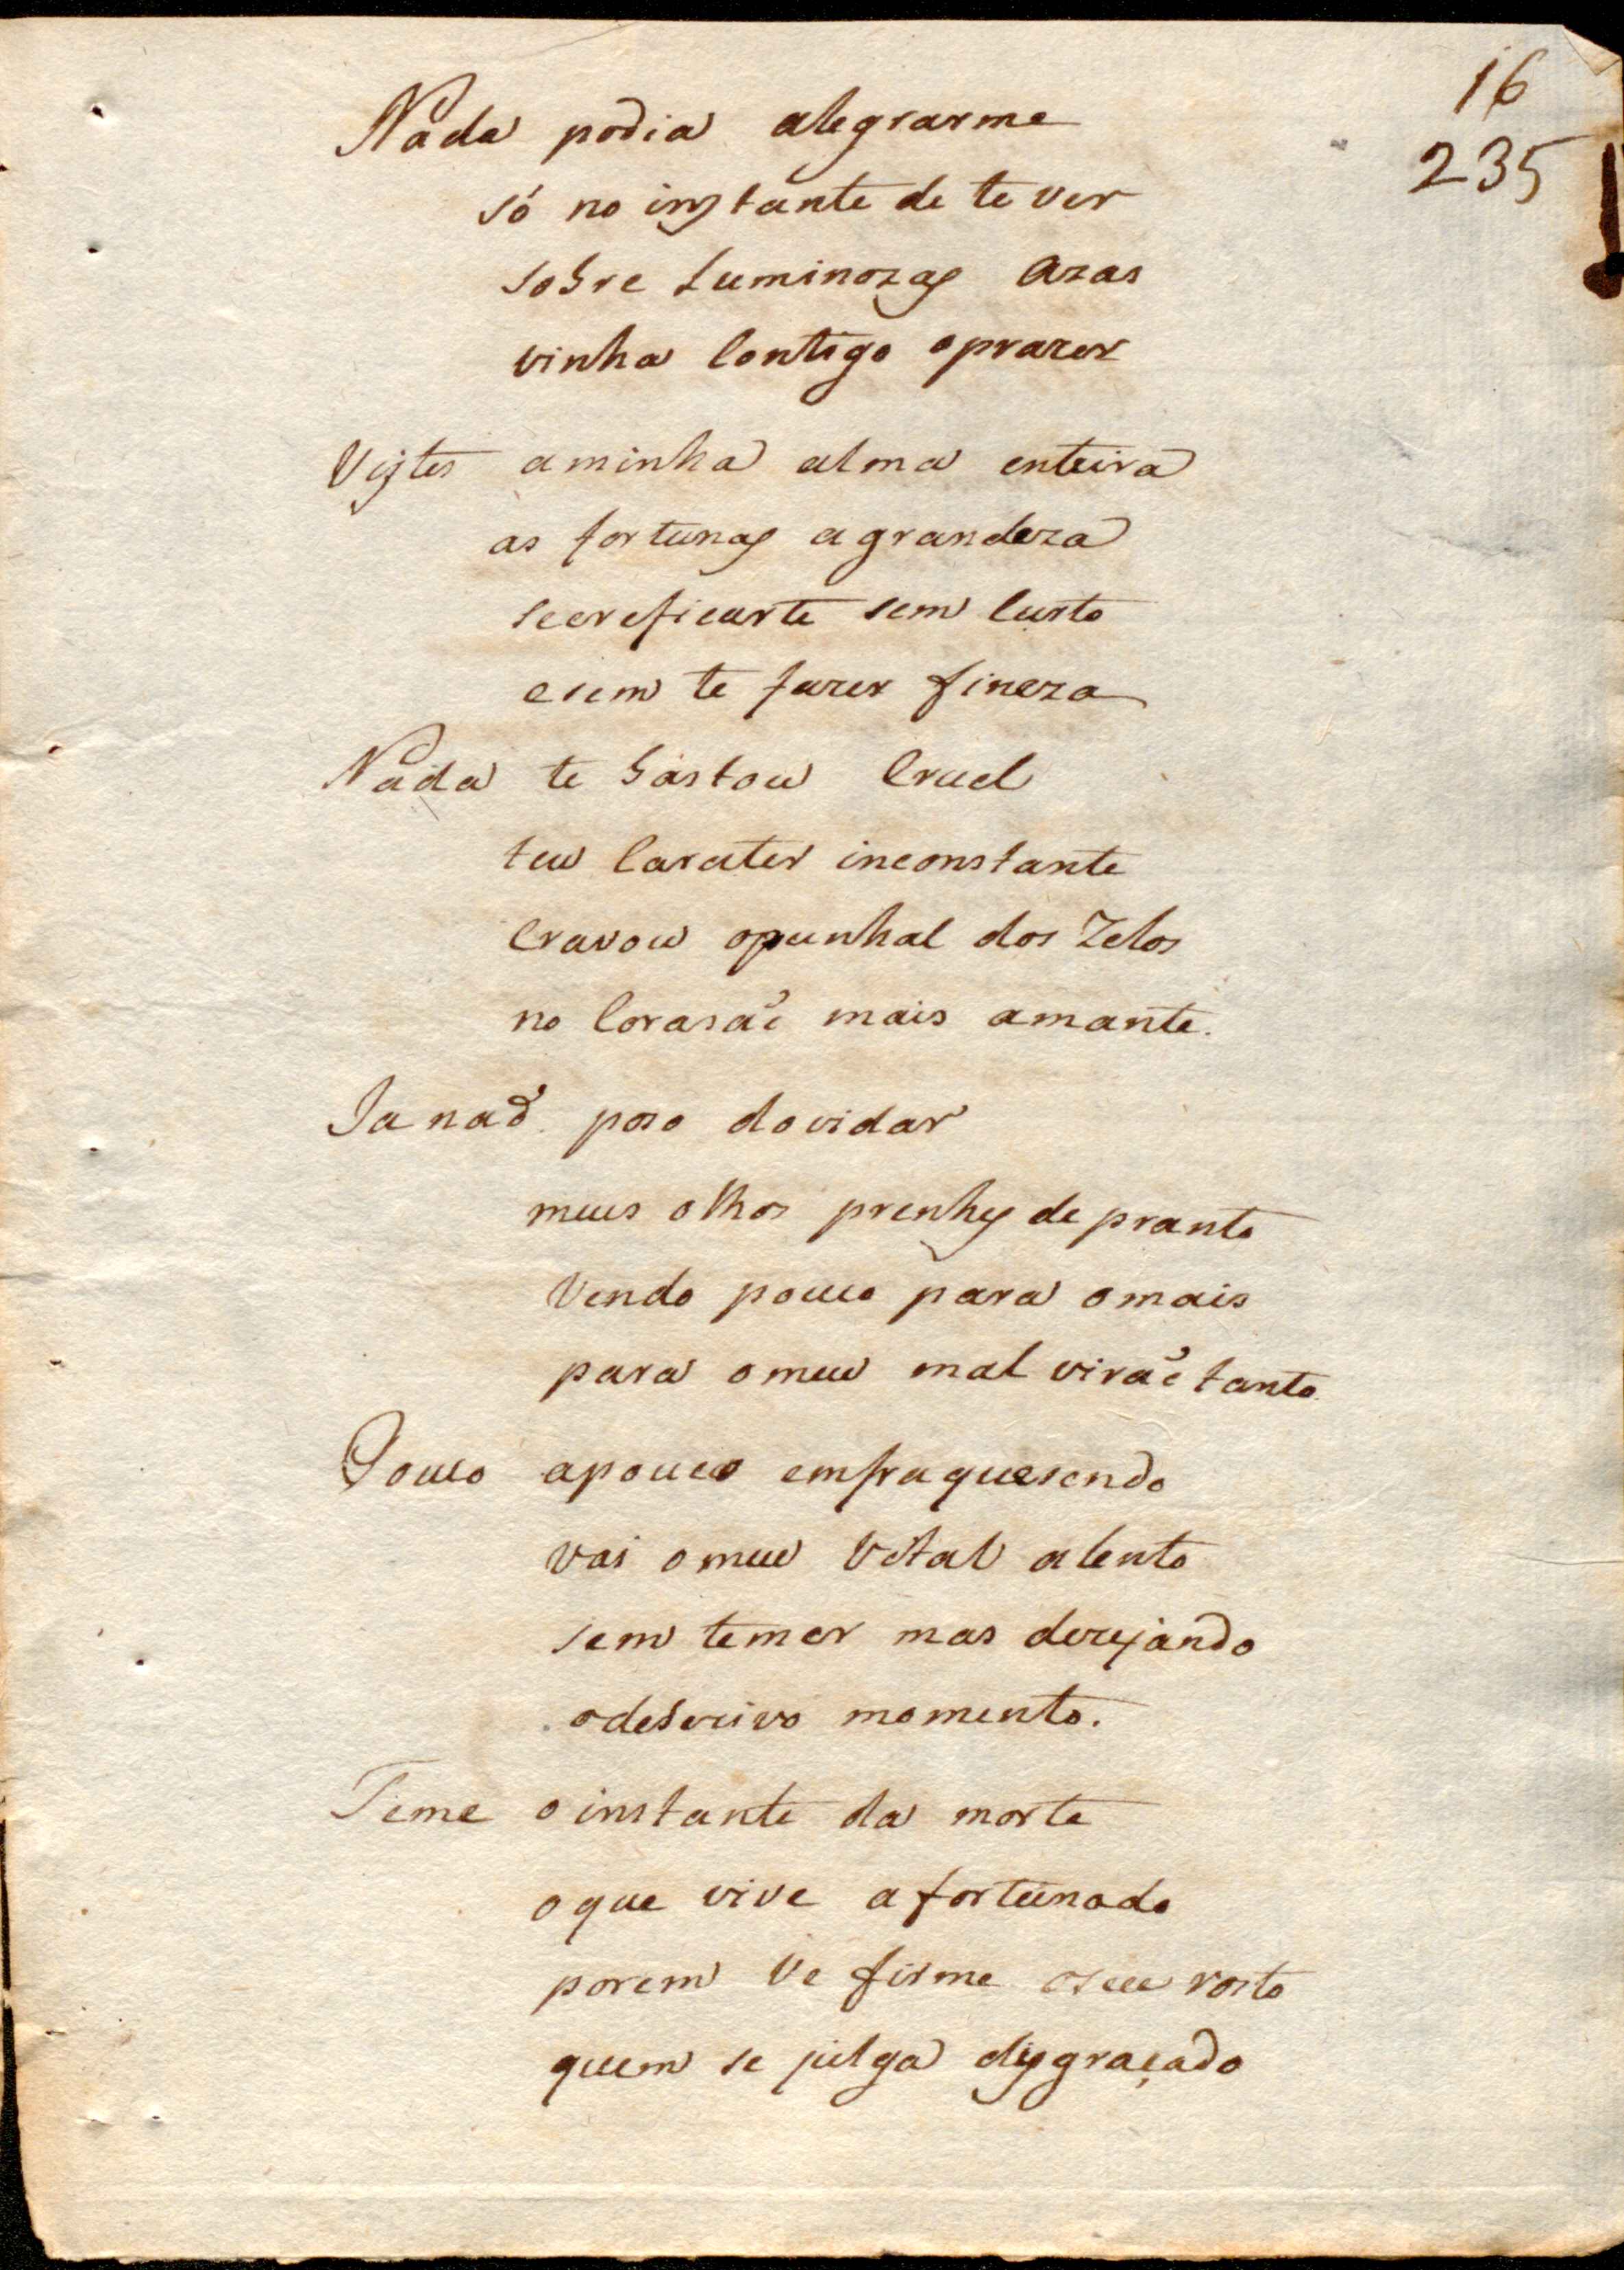 16
235
Nada podia alegrarme
só no instante de te ver
sobre Luminozas Azas
vinha Contigo oprazer
Vistes aminha alma enteira
as fortunas agrandeza
secreficarte sem Custo
esem te fazer fineza
Nada te bastou Cruel
teu Carater inconstante
Cravou opunhal dos Zelos
no Corasaõ mais amante.
Ja naõ poso dovidar
meus olhos prenhes de pranto
Vendo pouco para omais
para omeu mal viraõ tanto
Pouco apouco emfraquesendo
vai omeu Vital alento
sem temer mas dezejando
odesecivo momento.
Teme oinstante da morte
oque vive afortunado
porem Ve firme oseu rosto
quem se julga disgraçado